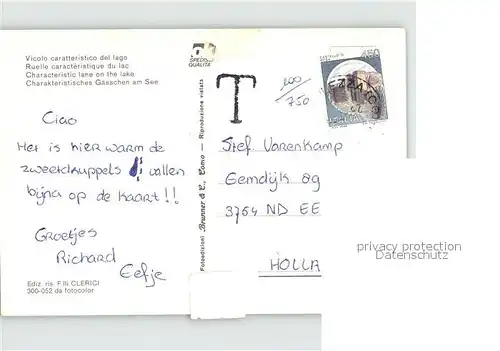 Vicolo caratteristico del lago
Ruelle caractéristique du lac
Characteristic lane on the lake
Charakteristisches Gässchen am See
SPEDIZ
QUALITÀ
T
200
750
450
Ciao
Het is hier warm de
zweetdruppels vallen
bijna op de kaart!!
Groetjes
Richard
Eefje
Ediz. ris. F.lli CLERICI
300-052 da fotocolor
Fotoedizioni Brunner & C., Como - Riproduzione vietata
Stef Varenkamp
Eemdijk 89
3754 ND EE
HOLLA
privacy protection
Datenschutz